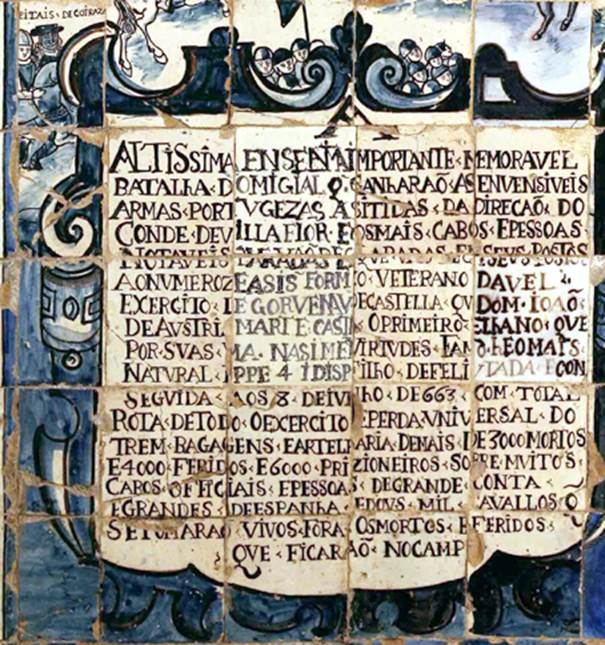 EITAIS · DE COIRAZA
ALTISSIMA IMPORTANTE MEMORAVEL
BATALHA DOMIGIAL Q. GANHARAÕ AS ENVENSIVEIS
ARMAS PORTVGEZAS ASITIDAS DA DIRECAÕ DO
CONDE DEVILLAFLOR EOSMAIS CABOS EPESSOAS
NOTAVEIS SEVS POSTOS
AONVMEROZ EASIS FORM O VETERANO DAVEL
EXERCITO DECASTELLA QV DOM IOAÕ
DEAVSTRI MARI E CASI OPRIMEIRO ELHANO QVE
POR SVAS MA. NASIME VIRTVDES FAM EOMAIS
NATVRAL PPE 4 IDISP FILHO DEFELI VTADA ECON
SEGVIDA AOS 8 DEIV HO DE 663 COM TOTAL
ROTA DETODO OEXERCITO EPERDA VNIVERSAL DO
TREM BAGAGENS EARTELHARIA DEMAIS DE 3000 MORTOS
E4000 FERIDOS E6000 PRIZIONEIROS SOBRE MVITOS
CABOS OFFICIAIS EPESSOAS DEGRANDE CONTA
EGRANDES DEESPANHA EDOVS MIL CAVALLOS Q
SETOMARAO VIVOS FORA OSMORTOS EFERIDOS
QVE FICARAÕ NOCAMP